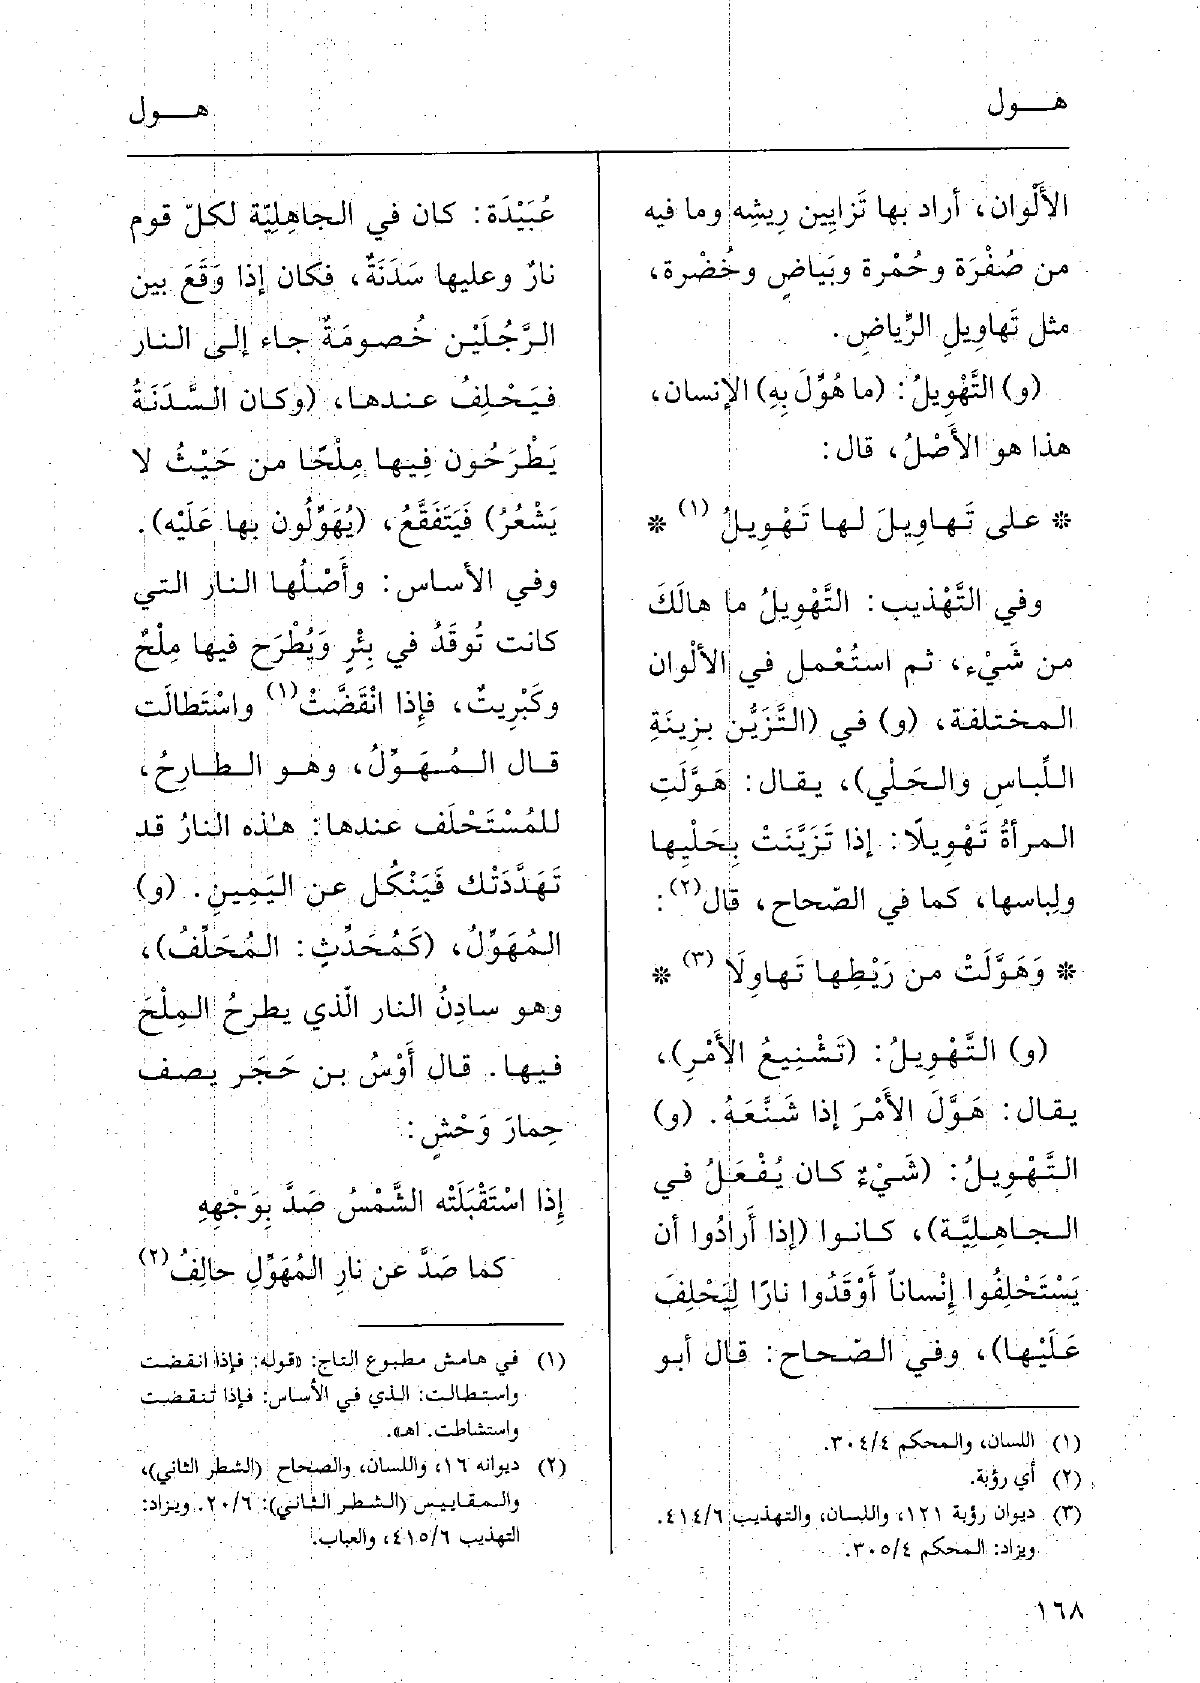 هـــول
هـــول
الأَلْوان، أراد بها تَزايين رِيشِه وما فيه
من صُفْرَة وحُمْرة وبَياضٍ وخُضْرة،
مثل تَهاوِيلِ الرِّياضِ.
(و) التَّهْوِيلُ: (ما هُوِّلَ بِهِ) الإنسان،
هذا هو الأَصْلُ، قال:
* على تَهاوِيلَ لها تَهْوِيلُ (١) *
وفي التَّهْذيب: التَّهْوِيلُ ما هالَكَ
من شَيْء، ثم استُعْمل في الألْوان
المختلفة، (و) في (التَّزَيُّن بزِينَةِ
اللِّباسِ والحَلْي)، يقال: هَوَّلَتِ
المرأةُ تَهْوِيلًا: إذا تَزَيَّنَتْ بِحَلْيِها
ولِباسها، كما في الصّحاح، قال(٢):
* وَهَوَّلَتْ من رَيْطِها تَهاوِلَا (٣) *
(و) التَّهْوِيلُ: (تَشْنِيعُ الأَمْرِ)،
يقال: هَوَّلَ الأَمْرَ إذا شَنَّعَهُ. (و)
التَّهْوِيلُ: (شَيْءٌ كان يُفْعَلُ في
الجاهِلِيَّة)، كانوا (إذا أَرادُوا أن
يَسْتَحْلِفُوا إِنْساناً أَوْقَدُوا نارًا لِيَحْلِفَ
عَلَيْها)، وفي الصّحاح: قال أبو
(١) اللسان، والمحكم ٣٠٤/٤.
(٢) أي رؤبة.
(٣) ديوان رؤبة ١٢١، واللسان، والتهذيب ٤١٤/٦.
ويزاد: المحكم ٣٠٥/٤.
عُبَيْدَة: كان في الجاهِلِيّة لكلّ قوم
نارٌ وعليها سَدَنَةٌ، فكان إذا وَقَعَ بين
الرَّجُلَيْن خُصومَةٌ جاء إلى النار
فيَحْلِفُ عندها، (وكان السَّدَنَةُ
يَطْرَحُون فِيها مِلْحًا من حَيْثُ لا
يَشْعُرُ) فَيَتَفَقَّعُ، (يُهَوِّلُون بها عَلَيْه).
وفي الأساس: وأَصْلُها النار التي
كانت تُوقَدُ في بِئْرٍ وَيُطْرَح فيها مِلْحٌ
وكَبْرِيتٌ، فإذا انْقَضَّتْ(١) واسْتَطالَت
قال المُهَوِّلُ، وهو الطارِحُ،
للمُسْتَحْلَف عندها: هذه النارُ قد
تَهَدَّدَتْك فَيَنْكُل عن اليَمِينِ. (و)
المُهَوِّلُ، (كَمُحَدِّثٍ: المُحَلِّفُ)،
وهو سادِنُ النار الّذي يطرحُ المِلْحَ
فيها. قال أَوْسُ بن حَجَر يصف
حِمارَ وَحْشٍ:
إِذا اسْتَقْبَلَتْه الشَّمْسُ صَدَّ بِوَجْهِهِ
كما صَدَّ عن نارِ المُهَوِّلِ حالِفُ(٢)
(١) في هامش مطبوع التاج: «قوله: فإذا انقضت
واستطالت: الذي في الأساس: فإذا تنقضت
واستشاطت. اهـ».
(٢) ديوانه ١٦، واللسان، والصحاح (الشطر الثاني)،
والمقاييس (الشطر الثاني): ٢٠/٦. ويزاد:
التهذيب ٤١٥/٦، والعباب.
١٦٨